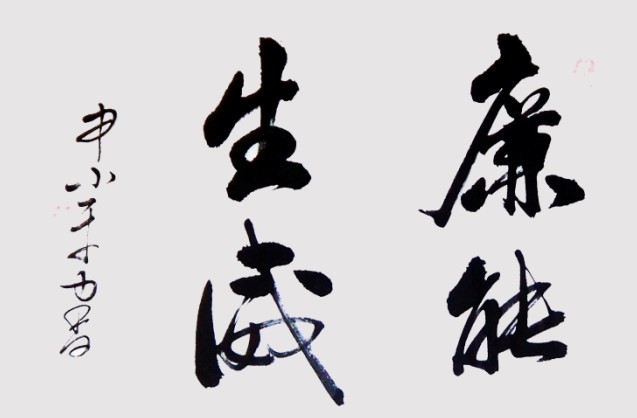 廉能
生威
申小平